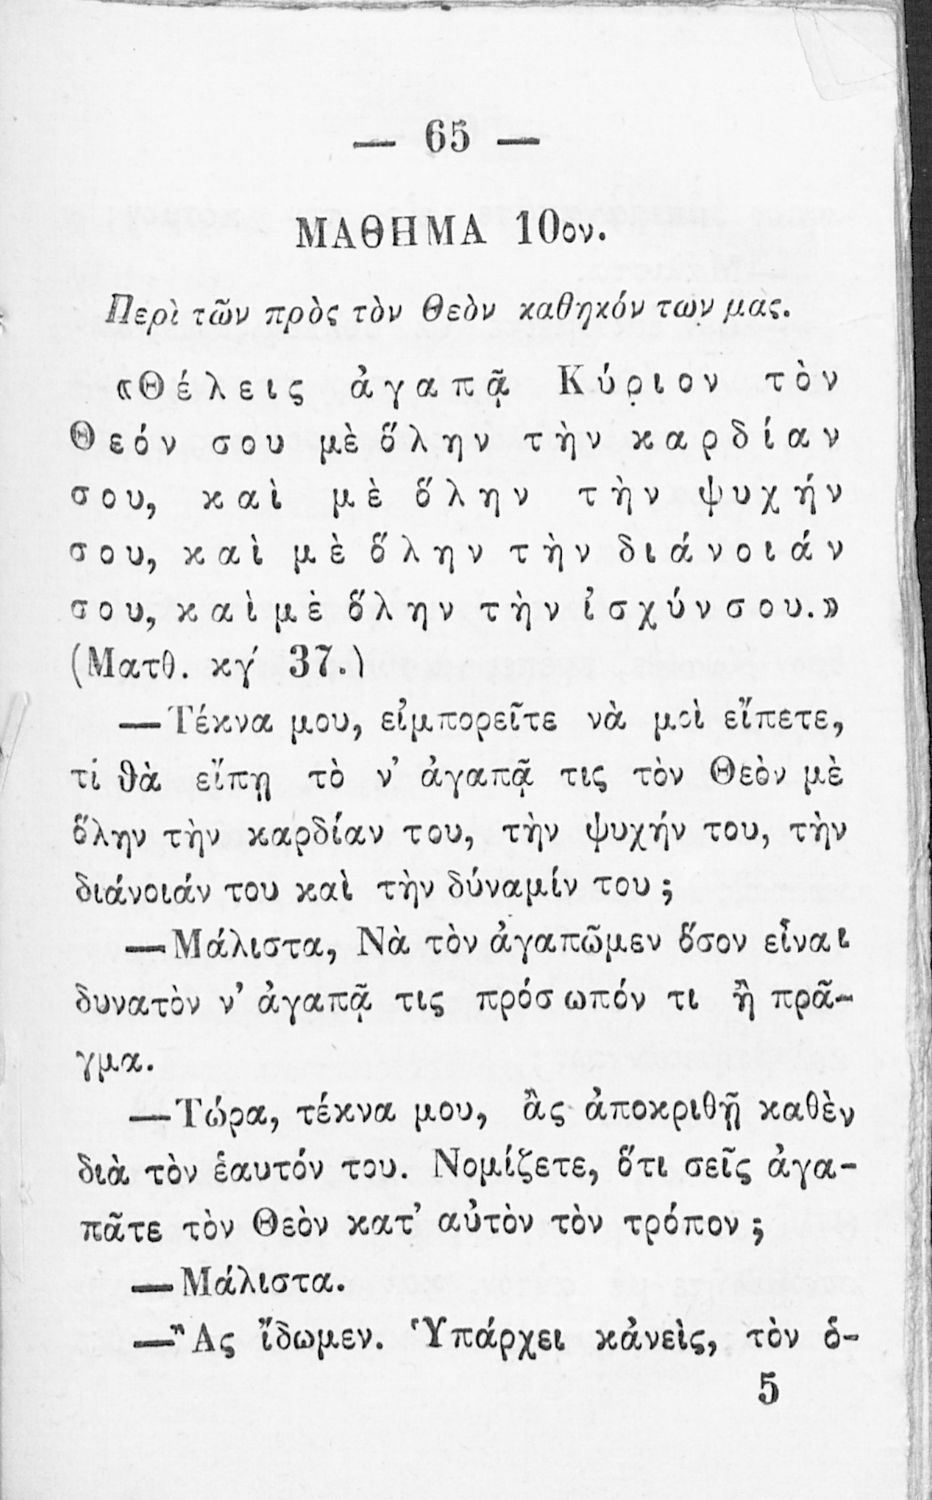 — 65 —
ΜΑΘΗΜΑ 10ον.
Περὶ τῶν πρὸς τὸν Θεὸν καθηκόντων μας.
«Θέλεις ἀγαπᾷ Κύριον τὸν
Θεόν σου μὲ ὅλην τὴν καρδίαν
σου, καὶ μὲ ὅλην τὴν ψυχήν
σου, καὶ μὲ ὅλην τὴν διάνοιάν
σου, καὶ μὲ ὅλην τὴν ἰσχύν σου.»
(Ματθ. κγ́ 37.)
— Τέκνα μου, εἰμπορεῖτε νὰ μοὶ εἴπετε,
τί θὰ εἴπῃ τὸ ν’ ἀγαπᾷ τις τὸν Θεὸν μὲ
ὅλην τὴν καρδίαν του, τὴν ψυχήν του, τὴν
διάνοιάν του καὶ τὴν δύναμίν του ;
— Μάλιστα, Νὰ τὸν ἀγαπῶμεν ὅσον εἶναι
δυνατὸν ν’ ἀγαπᾷ τις πρόσωπόν τι ἢ πρᾶ-
γμα.
— Τώρα, τέκνα μου, ἂς ἀποκριθῇ καθὲν
διὰ τὸν ἑαυτόν του. Νομίζετε, ὅτι σεῖς ἀγα-
πᾶτε τὸν Θεὸν κατ’ αὐτὸν τὸν τρόπον ;
— Μάλιστα.
— Ἂς ἴδωμεν. Ὑπάρχει κἀνεὶς, τὸν ὁ-
5